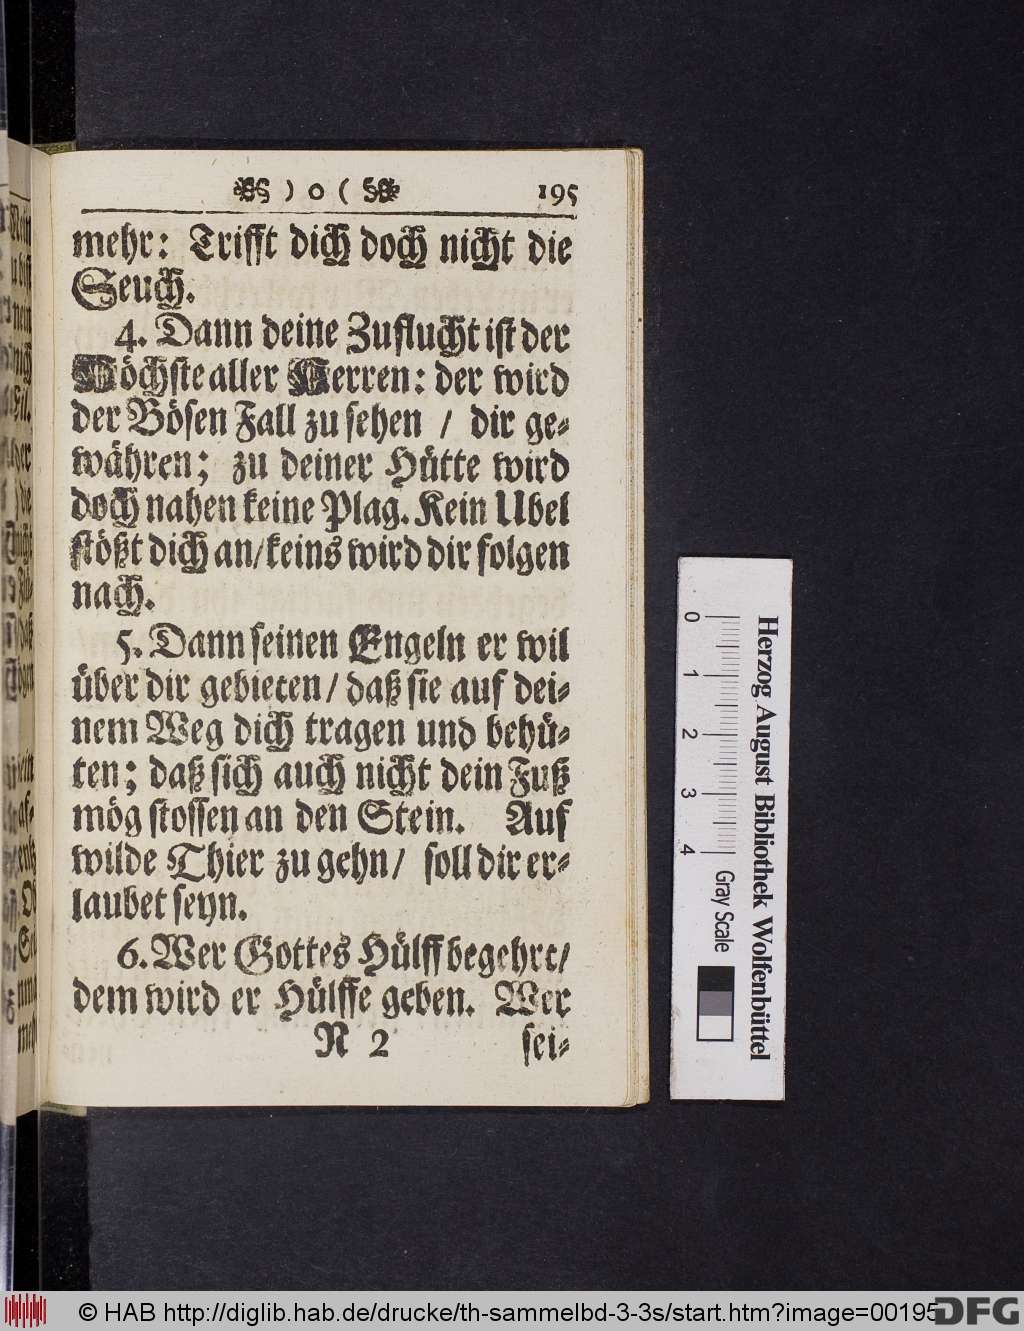 ) o ( 195
mehr: Trifft dich doch nicht die
Seuch.
4. Dann deine Zuflucht ist der
Höchste aller Herren: der wird
der Bösen Fall zu sehen / dir ge-
währen; zu deiner Hütte wird
doch nahen keine Plag. Kein Ubel
stößt dich an/keins wird dir folgen
nach.
5. Dann seinen Engeln er wil
über dir gebieten/ daß sie auf dei-
nem Weg dich tragen und behü-
ten; daß sich auch nicht dein Fuß
mög stossen an den Stein. Auf
wilde Thier zu gehn/ soll dir er-
laubet seyn.
6. Wer Gottes Hülff begehrt/
dem wird er Hülffe geben. Wer
N 2 sei-
0 1 2 3 4 Gray Scale
Herzog August Bibliothek Wolfenbüttel
© HAB http://diglib.hab.de/drucke/th-sammelbd-3-3s/start.htm?image=00195
DFG